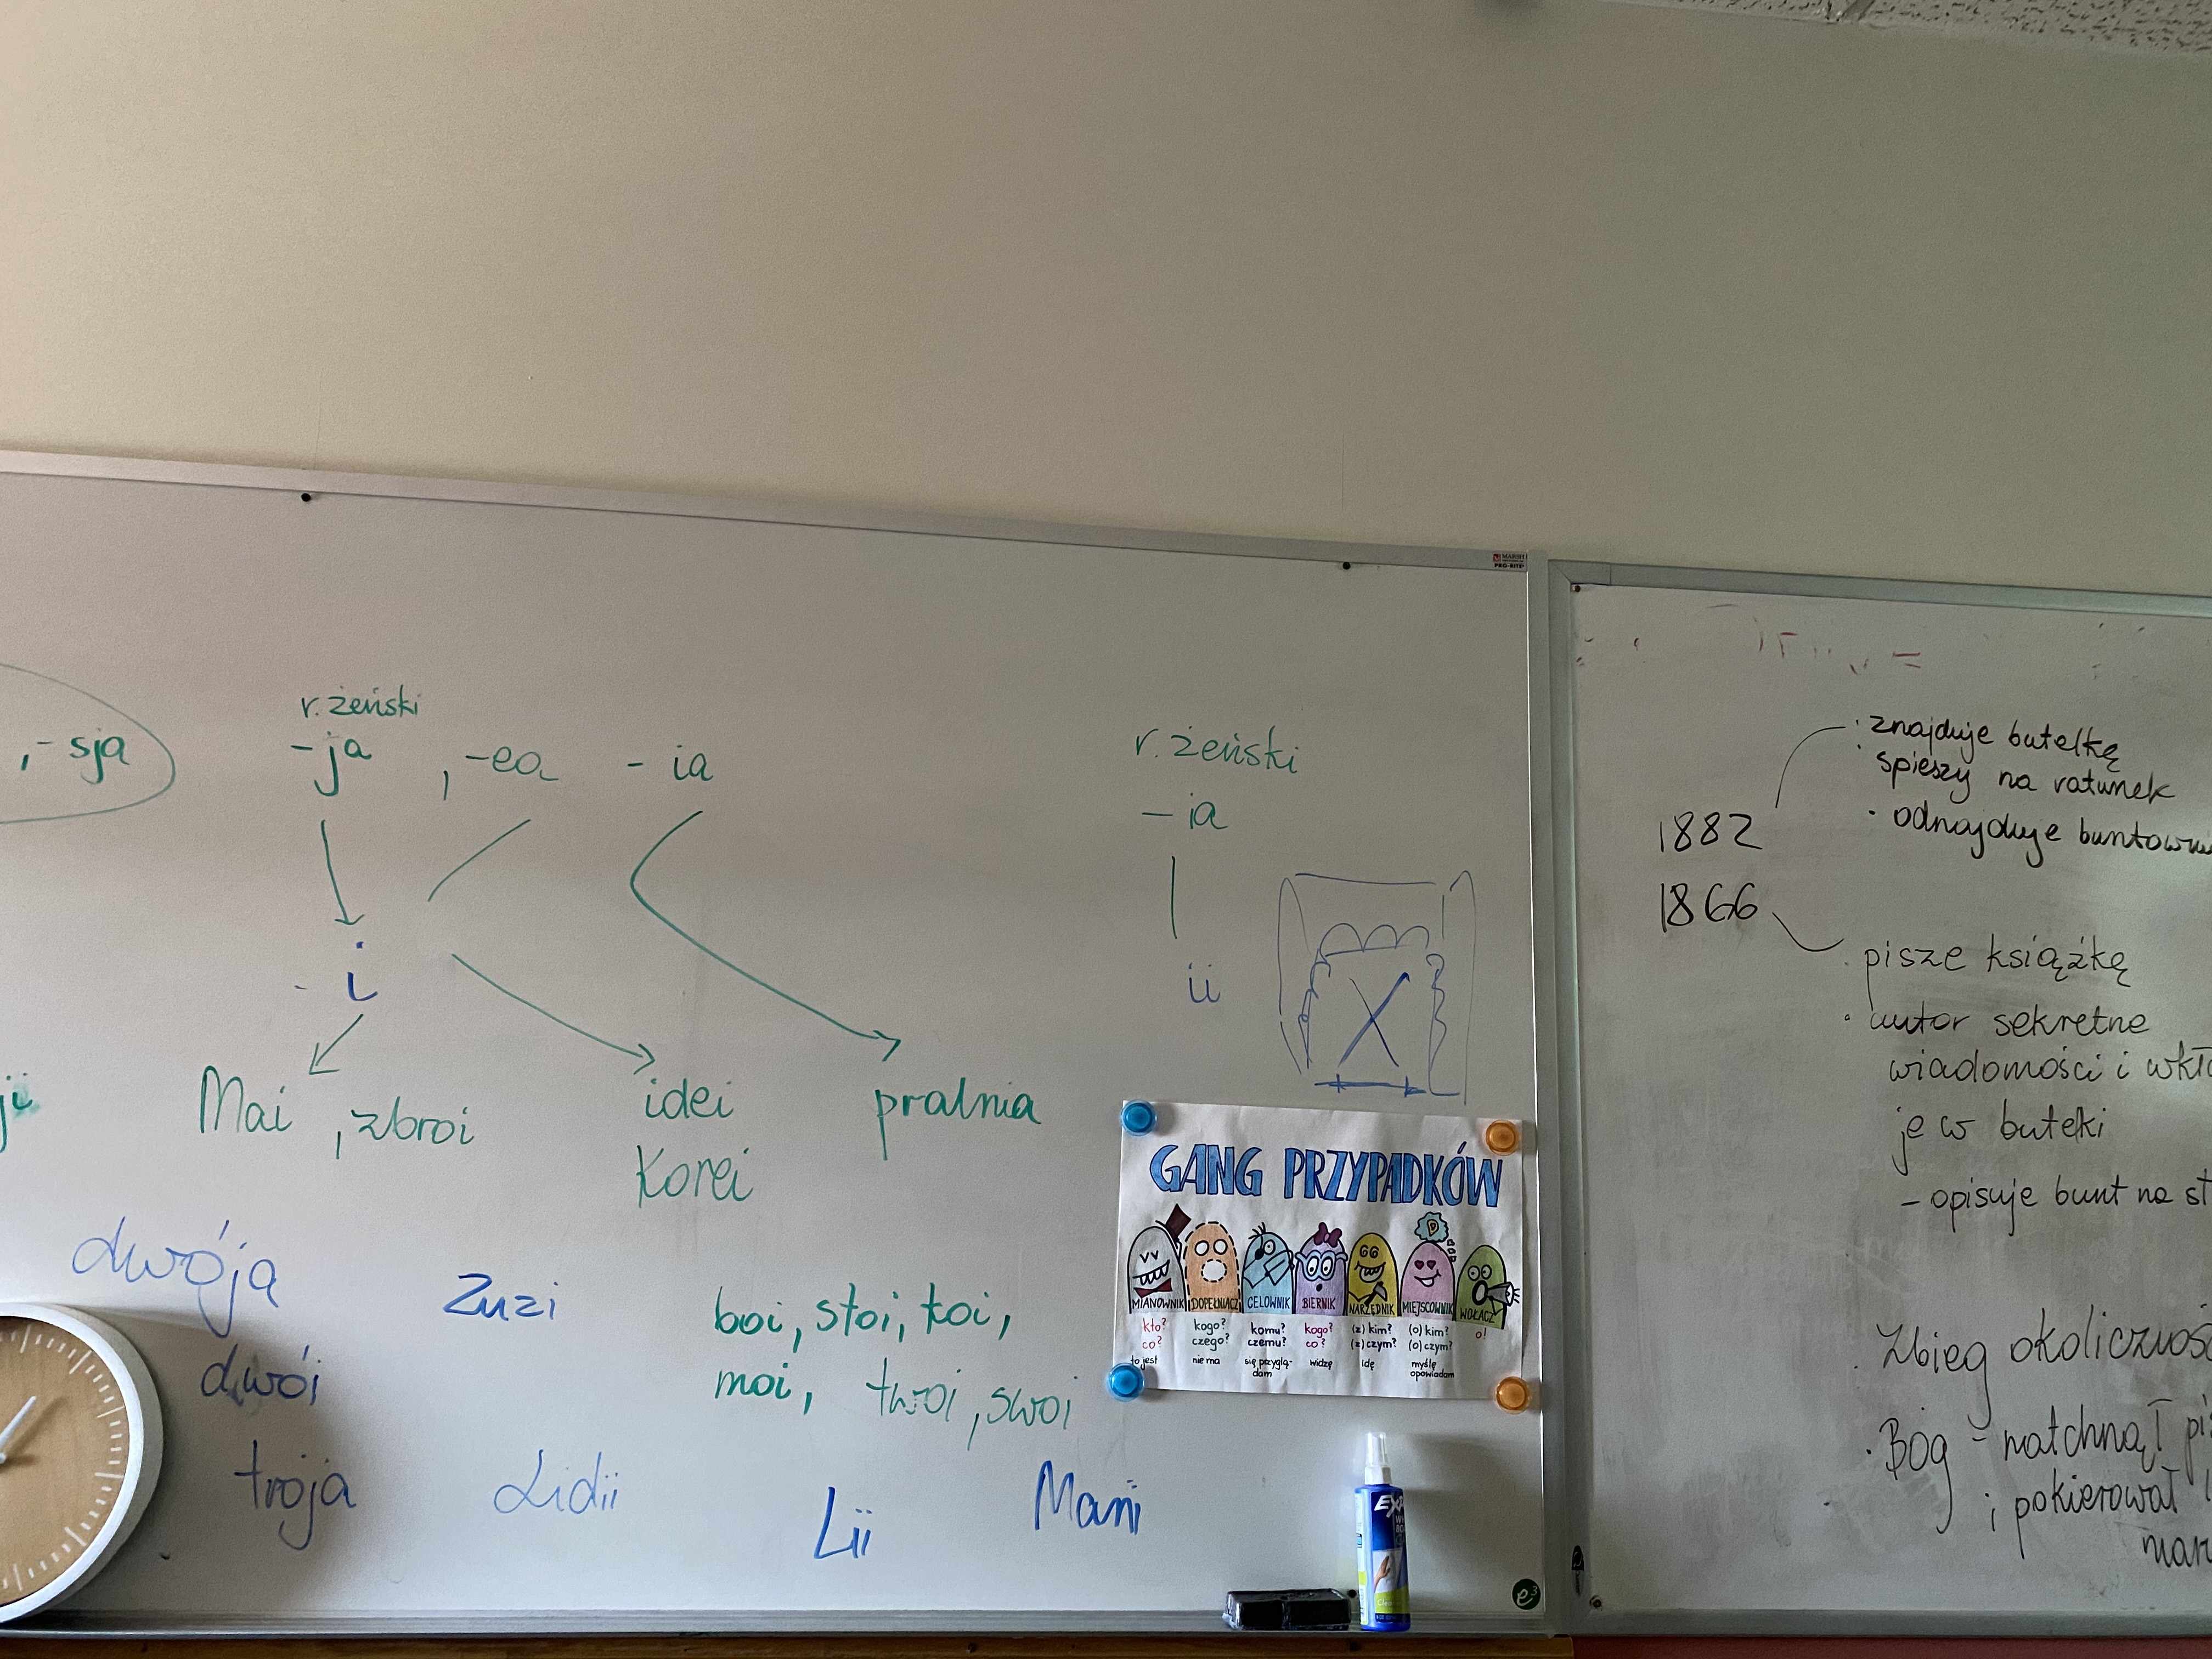 , -sja
r. żeński
-ja , -ea - ia
i
Mai , zbroi
idei
Korei
pralnia
r. żeński
- ia
ii
ji
dwója
dwói
troja
Zuzi
Lidii
boi, stoi, koi,
moi, twoi, swoi
Lii
Mani
GANG PRZYPADKÓW
MIANOWNIK DOPEŁNIACZ CELOWNIK BIERNIK NARZĘDNIK MIEJSCOWNIK WOŁACZ
kto? kogo? komu? kogo? (z) kim? (o) kim? o!
co? czego? czemu? co? (z) czym? (o) czym?
to jest nie ma się przyglą- widzę idę myślę
dam opowiadam
MARSH
PRO-RITE
EXP
e³
1882
· znajduje butelkę
· spieszy na ratunek
· odnajduje buntown
1866
· pisze książkę
· autor sekretne
wiadomości i wkła
je w butelki
- opisuje bunt na st
· Zbieg okolicznoś
· Bóg - natchnął pi
i pokierował
mar